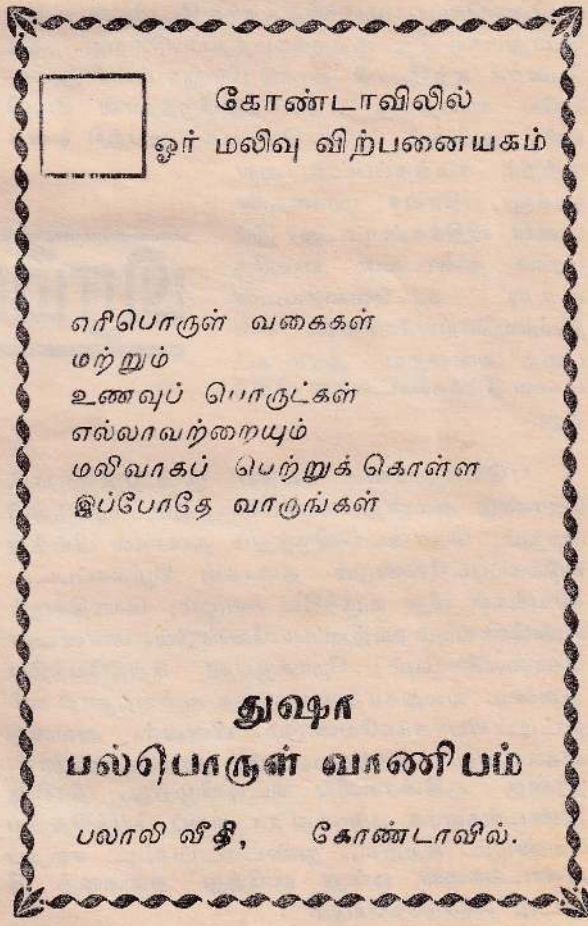 கோண்டாவிலில்
ஓர் மலிவு விற்பனையகம்
எரிபொருள் வகைகள்
மற்றும்
உணவுப் பொருட்கள்
எல்லாவற்றையும்
மலிவாகப் பெற்றுக் கொள்ள
இப்போதே வாருங்கள்
துஷா
பல்பொருள் வாணிபம்
பலாலி வீதி, கோண்டாவில்.